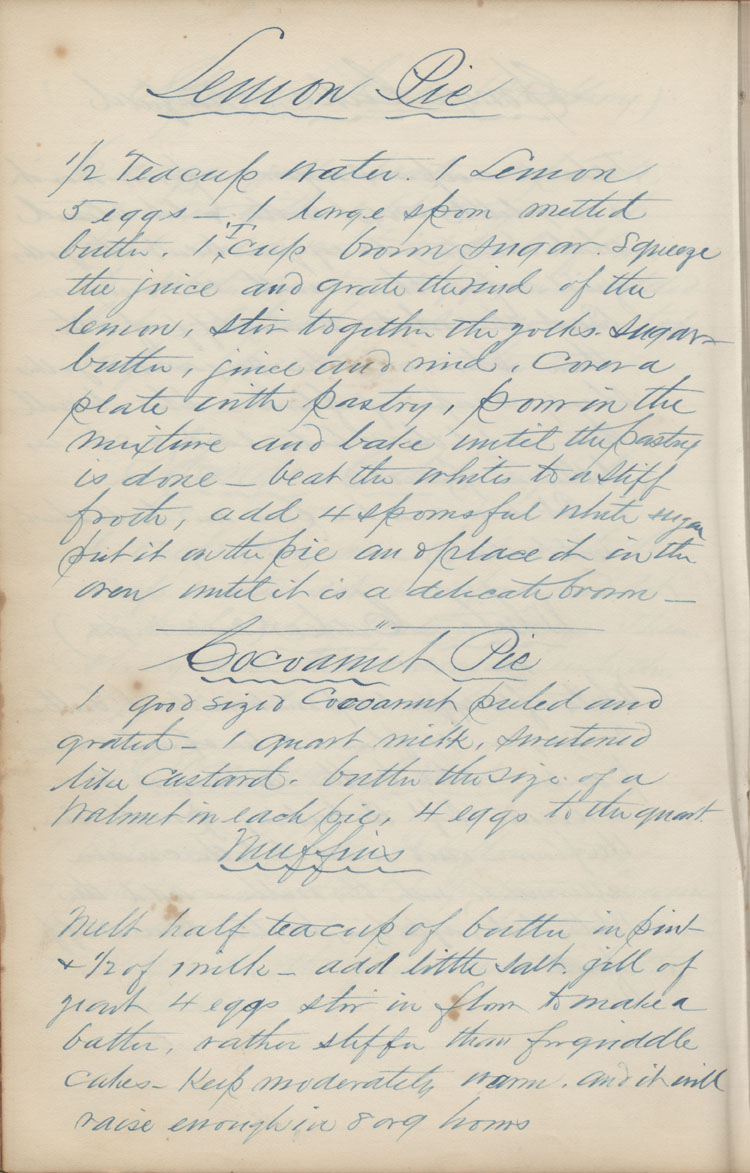 Lemon Pie
1/2 Teacup water. 1 Lemon
5 eggs — 1 large spoon melted
butter. 1 T. cup brown sugar. Squeeze
the juice and grate the rind of the
lemon, stir together the yolks. sugar
butter, juice and rind. Cover a
plate with pastry, pour in the
mixture and bake until the pastry
is done — beat the whites to a stiff
froth, add 4 spoonsful white sugar
put it on the pie and place it in the
oven until it is a delicate brown —
Cocoanut Pie
1 good sized Cocoanut peeled and
grated — 1 quart milk, sweetened
like custard. butter the size of a
Walnut in each pie, 4 eggs to the quart.
Muffins
Melt half teacup of butter in pint
+ 1/2 of milk — add little salt. gill of
yeast 4 eggs stir in flour to make a
batter, rather stiffer than for griddle
cakes — Keep moderately warm. and it will
raise enough in 8 or 9 hours